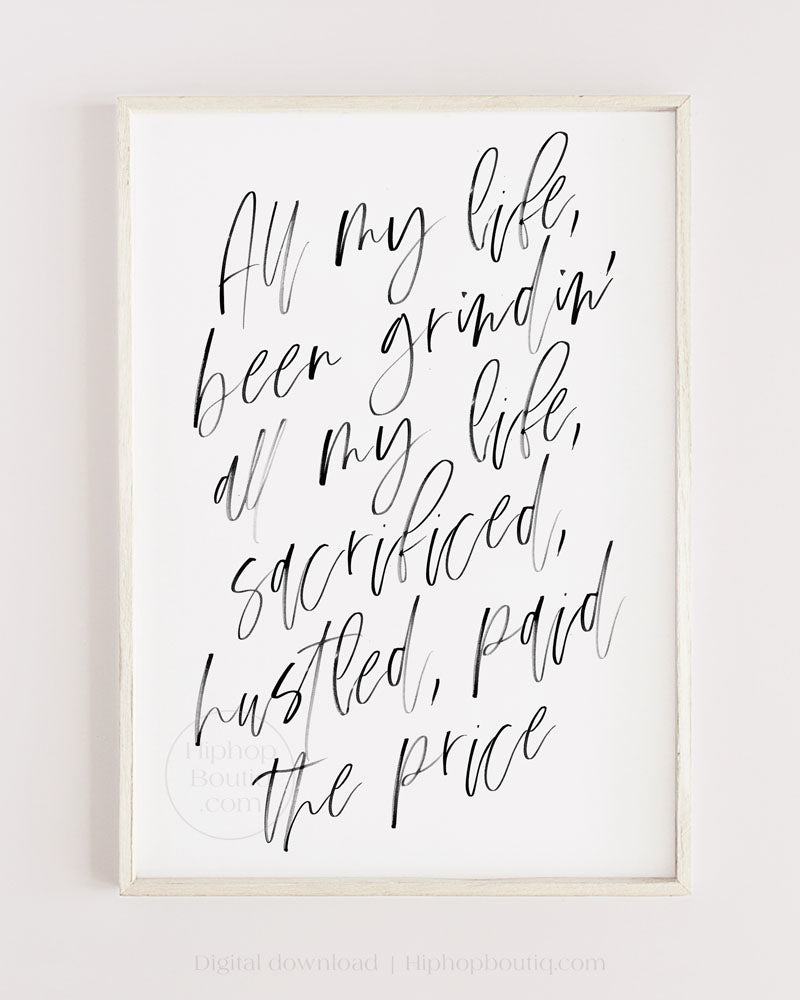 All my life,
been grindin'
all my life,
sacrificed,
hustled, paid
the price
Hiphop
Boutiq
.com
Digital download | Hiphopboutiq.com